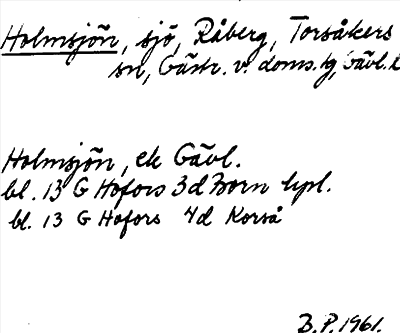 Holmsjön, sjö, Råberg, Torsåkers
sn, Gästr. v. doms.tg, Gävl. l
Holmsjön, ek Gävl.
bl. 13 G Hofors 3d Born kpl.
bl. 13 G Hofors 4d Korså
B.P. 1961.